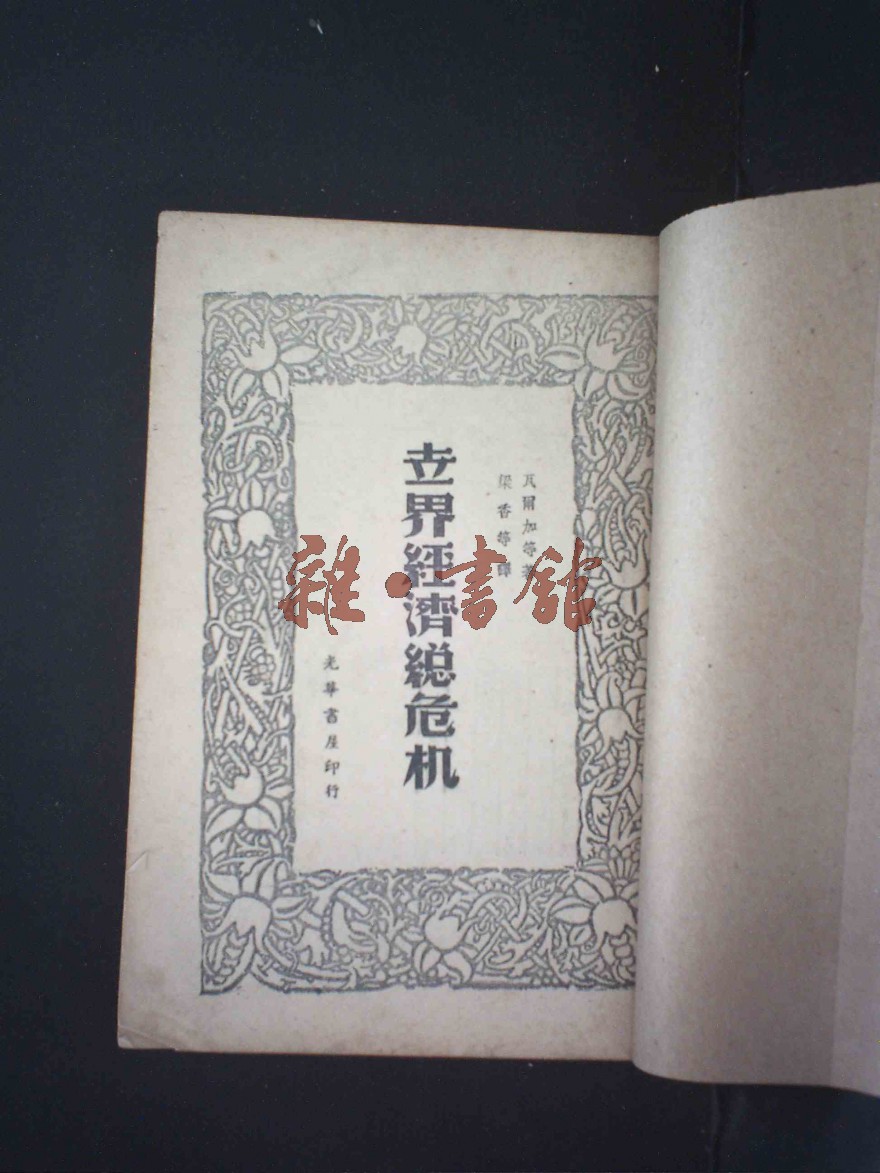 瓦爾加等著
梁香等譯
世界經濟總危机
光華書屋印行
雜·書館